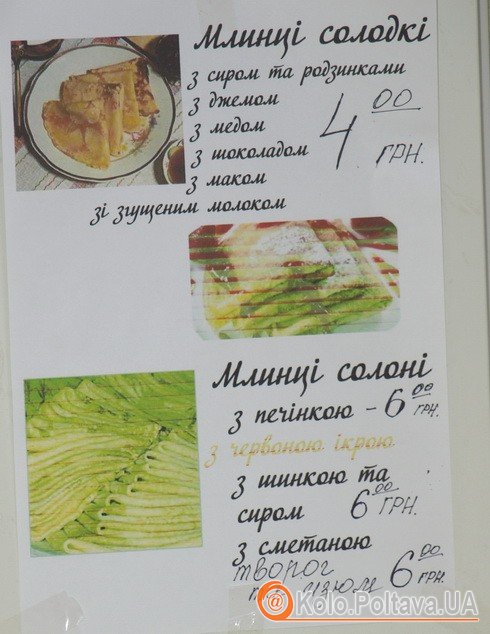 Млинці солодкі
з сиром та родзинками
з джемом
з медом
з шоколадом
з маком
зі згущеним молоком
4 00 ГРН.
Млинці солоні
з печінкою - 6 00 ГРН.
з червоною ікрою
з шинкою та
сиром 6 00 ГРН.
з сметаною
творог
изюм 6 00 ГРН.
Kolo.Poltava.UA